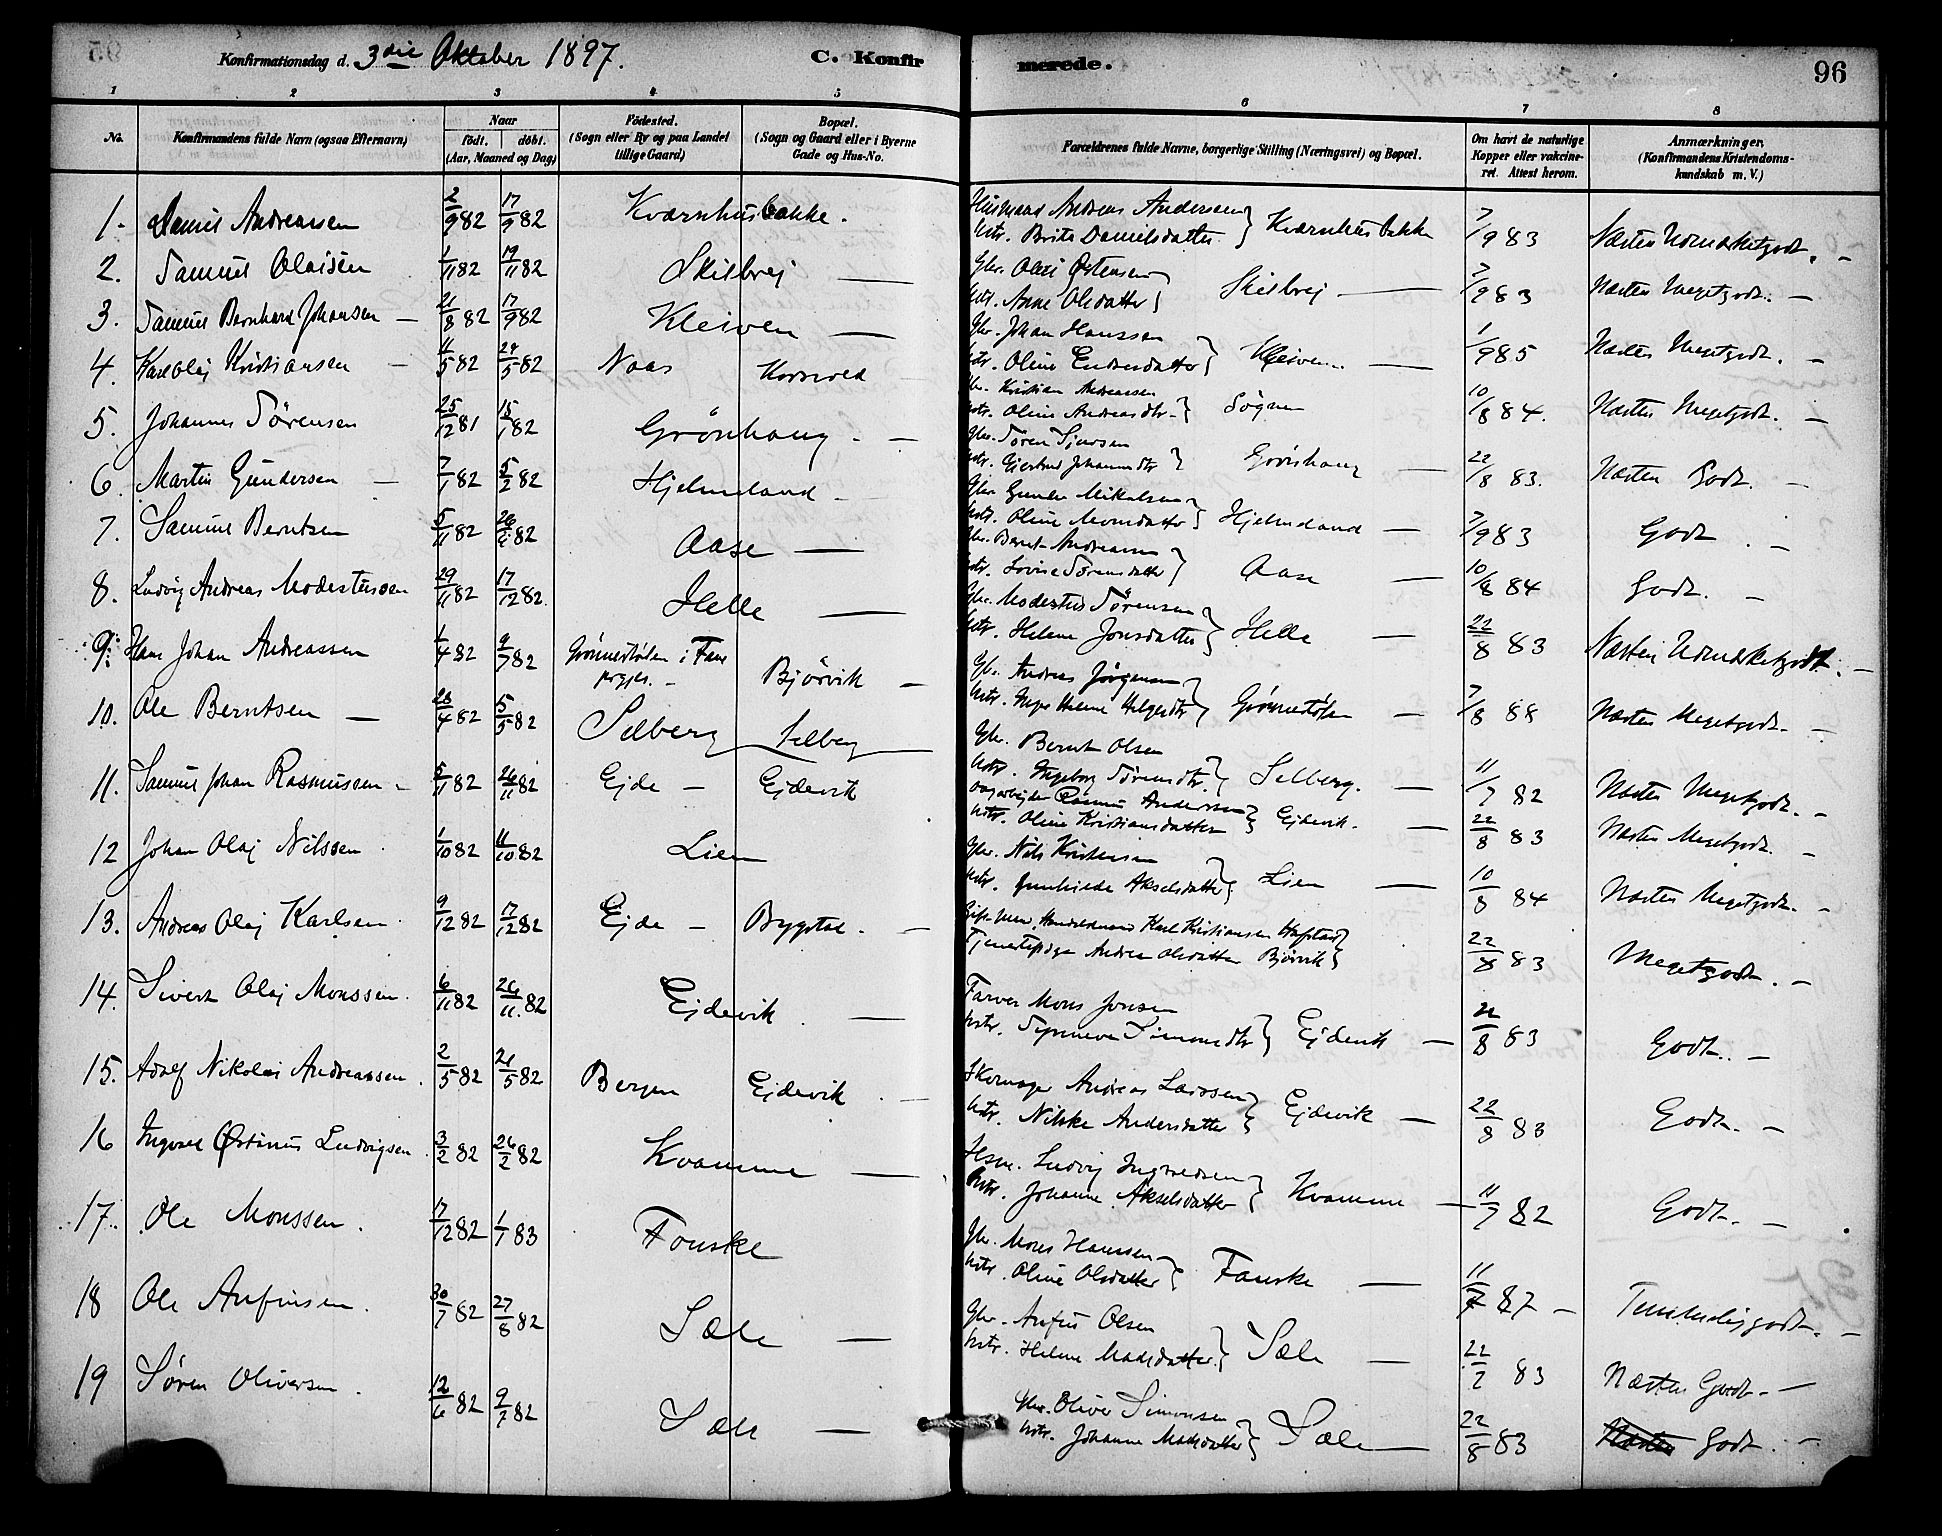 Konfirmationsdag d. 3die Oktober 1897. C. Konfirmerede. 96
1 2 3 4 5 6 7 8
No. Konfirmandens fulde Navn (ogsaa Efternavn) Naar født. døbt. (Aar, Maaned og Dag) Fødested. (Sogn eller By og paa Landet tillige Gaard) Bopæl. (Sogn og Gaard eller i Byerne Gade og Hus-No. Forældrenes fulde Navne, borgerlige Stilling (Næringsvei) og Bopæl. Om havt de naturlige Kopper eller vakcineret. Attest herom. Anmærkninger, (Konfirmandens Kristendomskundskab m. V.)
1. Daniel Andreassen 2/9 82 17/9 82 Kværnhusbakke. Husmand Andreas Andersen Hstr. Brite Danielsdatter } Kværnhusbakke 7/9 83 Næsten Udmærketgodt. -
2. Samuel Olaisen 1/11 82 19/11 82 Skilbrej — Gbr. Olai Østensen Hstr. Anne Olsdatter } Skilbrej — 7/9 83 Næsten Megetgodt. -
3. Samuel Bernhard Johansen - 21/8 82 17/9 82 Kleiven — Gbr. Johan Hanssen Hstr. Oline Endresdatter } Kleiven — 1/9 85 Næsten Megetgodt. -
4. Karl Olaj Kristiansen - 11/5 82 29/5 82 Naas Kornved Gbr. Kristian Andreassen Hstr. Oline Andreasdtr. } Sogn 10/8 84. Næsten Megetgodt. -
5. Johannes Sørensen 25/12 81 15/1 82 Grønhaug. - Gbr. Søren Sjursen Hstr. Gjertrud Johannesdtr } Grønhaug — 22/8 83. Næsten Godt. -
6. Martin Gundersen - 7/1 82 5/2 82 Hjelmeland - Gbr. Gunder Mikalsen Hstr. Oline Monsdatter } Hjelmeland — 7/9 83 Godt. -
7. Samuel Berntsen 5/11 82 26/11 82 Aase — Gbr. Bernt Andreassen Hstr. Lovise Sørensdatter } Aase — 10/8 84 Godt. -
8. Ludvig Andreas Modestussen 29/11 82 17/12 82. Helle — Gbr. Modestus Sørensen Hstr. Helene Jonsdatter } Helle — 22/8 83 Næsten Udmærketgodt. -
9. Hans Johan Andreassen 1/4 82 9/7 82 Grønnestølen i Fane prgjld. - Bjørvik - Gbr. Andreas Jørgensen Hstr. Inger Helene Helgesdtr } Grønnestølen — 7/8 88 Næsten Megetgodt. -
10. Ole Berntsen — 23/4 82 5/5 82 Selberg Selberg — Gbr. Bernt Olsen Hstr. Ingeborg Sørensdtr. } Selberg. — 11/7 82 Næsten Megetgodt. -
11. Samuel Johan Rasmussen - 5/11 82 26/11 82 Ejde - Ejdevik Dagarbejder Rasmus Anderssen Hstr. Oline Kristiansdatter } Ejdevik. — 22/8 83 Næsten Megetgodt. -
12 Johan Olaj Nilssen 1/10 82 11/10 82 Lien Gbr. Nils Kristensen Hstr. Gunhilde Akselsdatter } Lien — 10/8 84 Næsten Megetgodt. -
13. Andreas Olaj Karlsen. 9/12 82 17/12 82 Ejde - Bygstad. - Gift Mand, Handelsmand Karl Kristiansen Hafstad Tjenestepige Andrea Olsdatter Bjørvik } 22/8 83 Megetgodt. -
14. Sivert Olaj Monssen. 6/11 82 26/11 82 Ejdevik. — Farver Mons Jonsen Hstr. Synneva Simonsdtr } Ejdevik — 22/8 83 Godt. -
15. Adolf Nikolai Andreassen. 2/5 82 21/5 82 Bergen Ejdevik. - Skomager Andreas Larssen Hstr. Nilske Andersdatter } Ejdevik — 22/8 83 Godt. -
16 Ingvald Østinus Ludvigsen. 3/2 82 26/2 82 Kvamme — Hsm. Ludvig Ingvaldsen Hstr. Johanne Akselsdatter } Kvamme — 11/7 82 Godt. -
17. Ole Monssen. 17/12 82 1/1 83 Fauske Gbr. Mons Hanssen Hstr. Oline Olsdatter } Fauske — 11/7 87 - Temmeliggodt. -
18 Ole Anfinsen. 30/7 82 27/8 82 Sæle — Gbr. Anfin Olsen Hstr. Helene Madsdatter. } Sæle — 22/7 83 Næsten Godt. -
19 Søren Oliversen. 12/6 82 9/7 82 Sæle — Gbr. Oliver Simonsen Hstr. Johanne Madsdatter } Sæle — 22/8 83 Næsten Godt. -